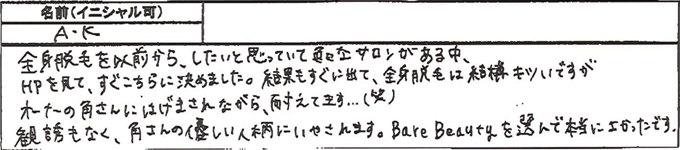 名前(イニシャル可)
A・K
全身脱毛を以前から、したいと思っていて色々なサロンがある中、
HPを見て、すぐこちらに決めました。結果もすぐに出て、全身脱毛は結構キツいですが
オーナーの角さんにはげまされながら、耐えてます…(笑)
観誘もなく、角さんの優しい人柄にいやされます。Bare Beautyを選んで本当によかったです。